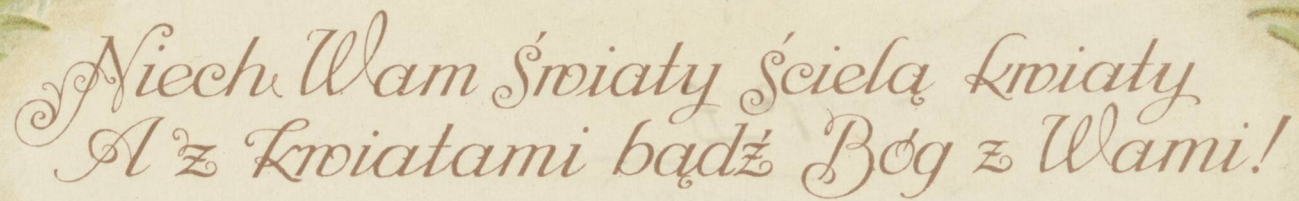 Niech Wam światy ścielą kwiaty
A z kwiatami bądź Bóg z Wami!